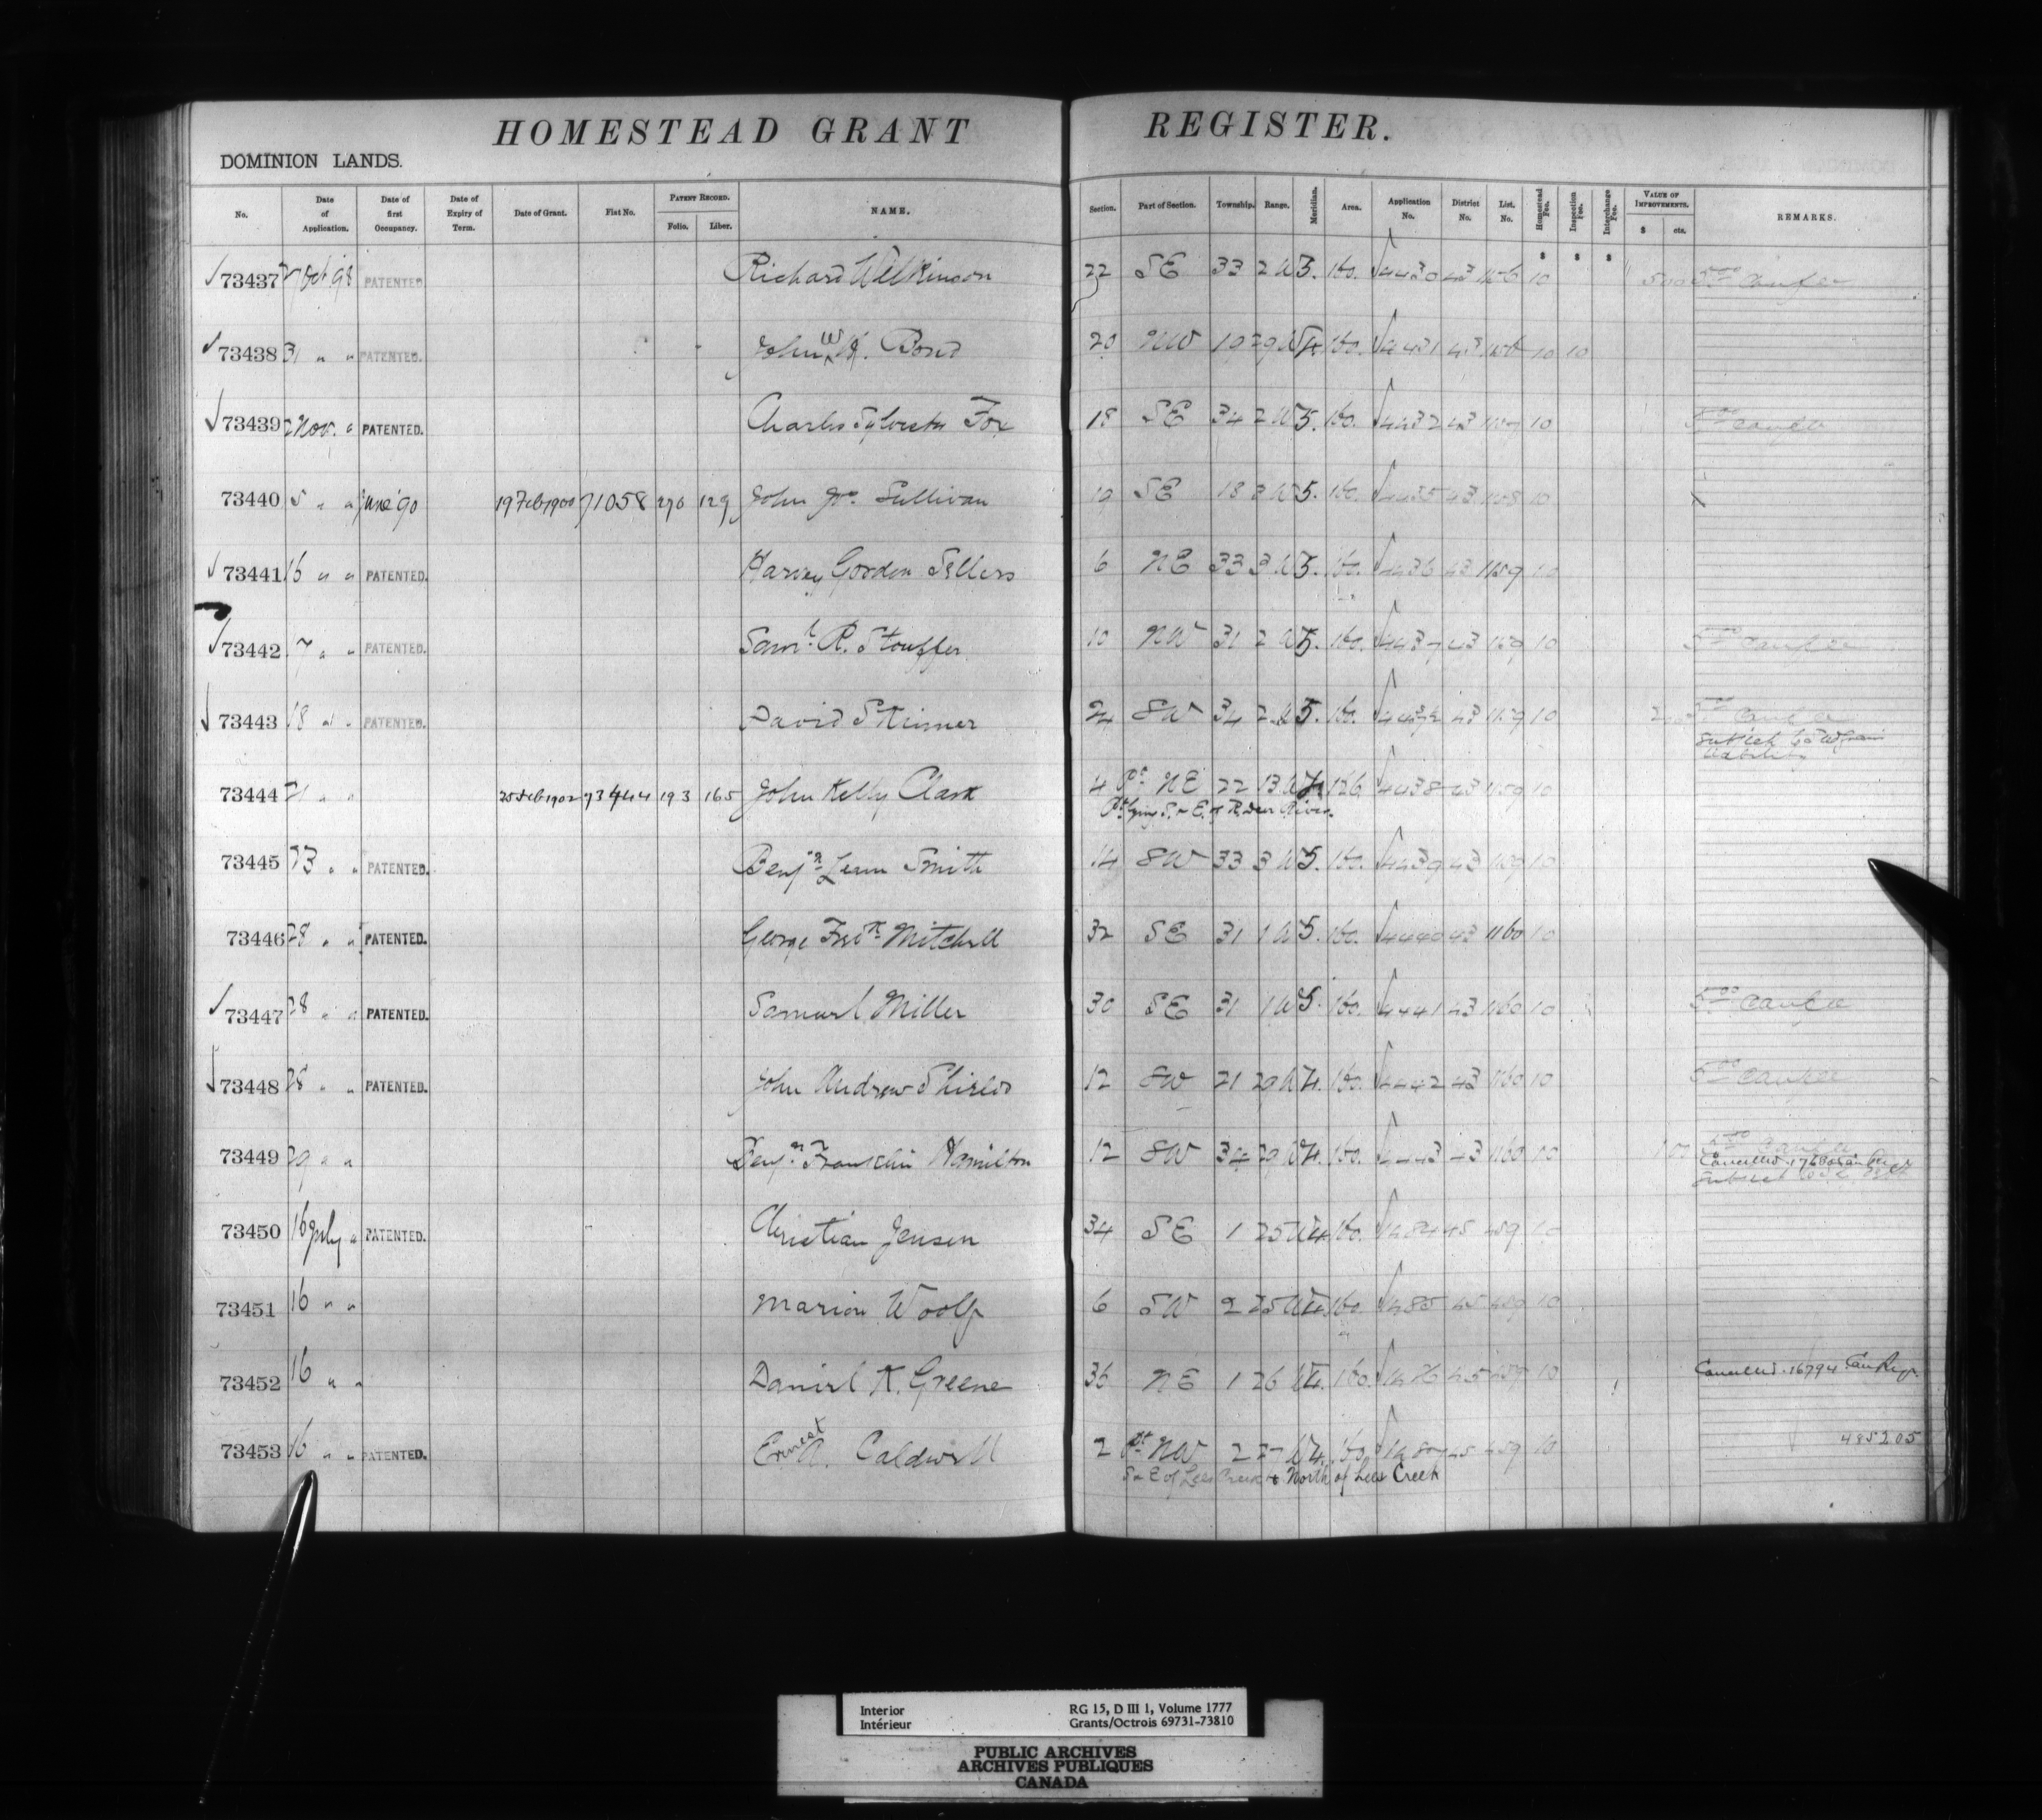 HOMESTEAD GRANT REGISTER.
DOMINION LANDS.
No. Date of Application. Date of first Occupancy. Date of Expiry of Term. Date of Grant. Fiat No. PATENT RECORD. Folio. Liber. NAME. Section. Part of Section. Township. Range. Meridian. Area. Application No. District No. List. No. Homestead Fee. Inspection Fee. Interchange Fee. VALUE OF IMPROVEMENTS. $ cts. REMARKS.
$ $ $
73437 Oct '98 PATENTED Richard Wilkinson 22 SE 33 2 W 5. 160. 4430 43 1156 10 500 5.00 Can fee
73438 31 " " PATENTED. John W. H. Bond 20 NW 19 29 W 4. 160. 4431 43 10 10
73439 2 Nov. " PATENTED. Charles Sylvester Fox 18 SE 34 2 W 5. 160. 4432 43 1157 10 5.00 can fee
73440 5 " " June '90 19 Feb 1900 71058 270 129 John Jos. Sullivan 10 SE 18 3 W 5. 160. 4435 43 1158 10
73441 16 " " PATENTED. Harvey Gordon Sellers 6 NE 33 3 W 5. 160. 4436 43 1159 10
73442 17 " " PATENTED. Saml. R. Stouffer 10 NW 31 2 W 5. 160. 4437 43 1159 10 5.00 can fee
73443 18 " " PATENTED. David Skinner 24 SW 34 2 W 5. 160. 43 1159 10 5.00 can fee
Subject to
liability
73444 21 " " 25 Feb 1902 73444 193 165 John Kelly Clark 4 Pt NE 22 13 W 4. 126 4438 43 1159 10
Pt lying S. & E. of R. Deer River.
73445 23 " " PATENTED. Benjn. Leum Smith 14 SW 33 3 W 5. 160. 4439 43 1159 10
73446 28 " " PATENTED. George Fredk. Mitchell 32 SE 31 1 W 5. 160. 4440 43 1160 10
73447 28 " " PATENTED. Samuel Miller 30 SE 31 1 W 5. 160. 4441 43 1160 10 5.00 can fee
73448 28 " " PATENTED. John Andrew Shields 12 SW 21 29 W 4. 160. 4442 43 1160 10 5.00 can fee
73449 29 " " Benjn. Franklin Hamilton 12 SW 34 29 W 4. 160. 4443 43 1160 10 5.00 Can fee
Cancelled. Can Reg
Subject to
73450 16 July " PATENTED. Christian Jensen 34 SE 1 25 W 4 160. 1484 45 459 10
73451 16 " " Marion Woolf 6 SW 2 25 W 4 160. 1485 45 459 10
73452 16 " " Daniel K. Greene 36 NE 1 26 W 4. 160. 45 459 10 Cancelled. 16794 Can Reg.
73453 16 " " PATENTED. Ernest A. Caldwell 2 Pt NW 2 27 W 4. 160. 1487 45 459 10 485205
S & E of Lees Creek & North of Lees Creek
Interior RG 15, D III 1, Volume 1777
Intérieur Grants/Octrois 69731-73810
PUBLIC ARCHIVES
ARCHIVES PUBLIQUES
CANADA